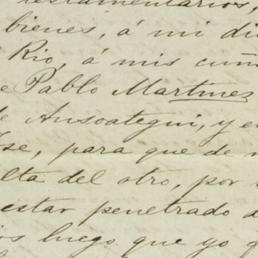 testamentarios,
bienes, á mi di
Rio, á mis cuñ
e Pablo Martinez
de Ansoategui, y e
se, para que de
lta del otro, por
estar penetrado d
os luego que yo